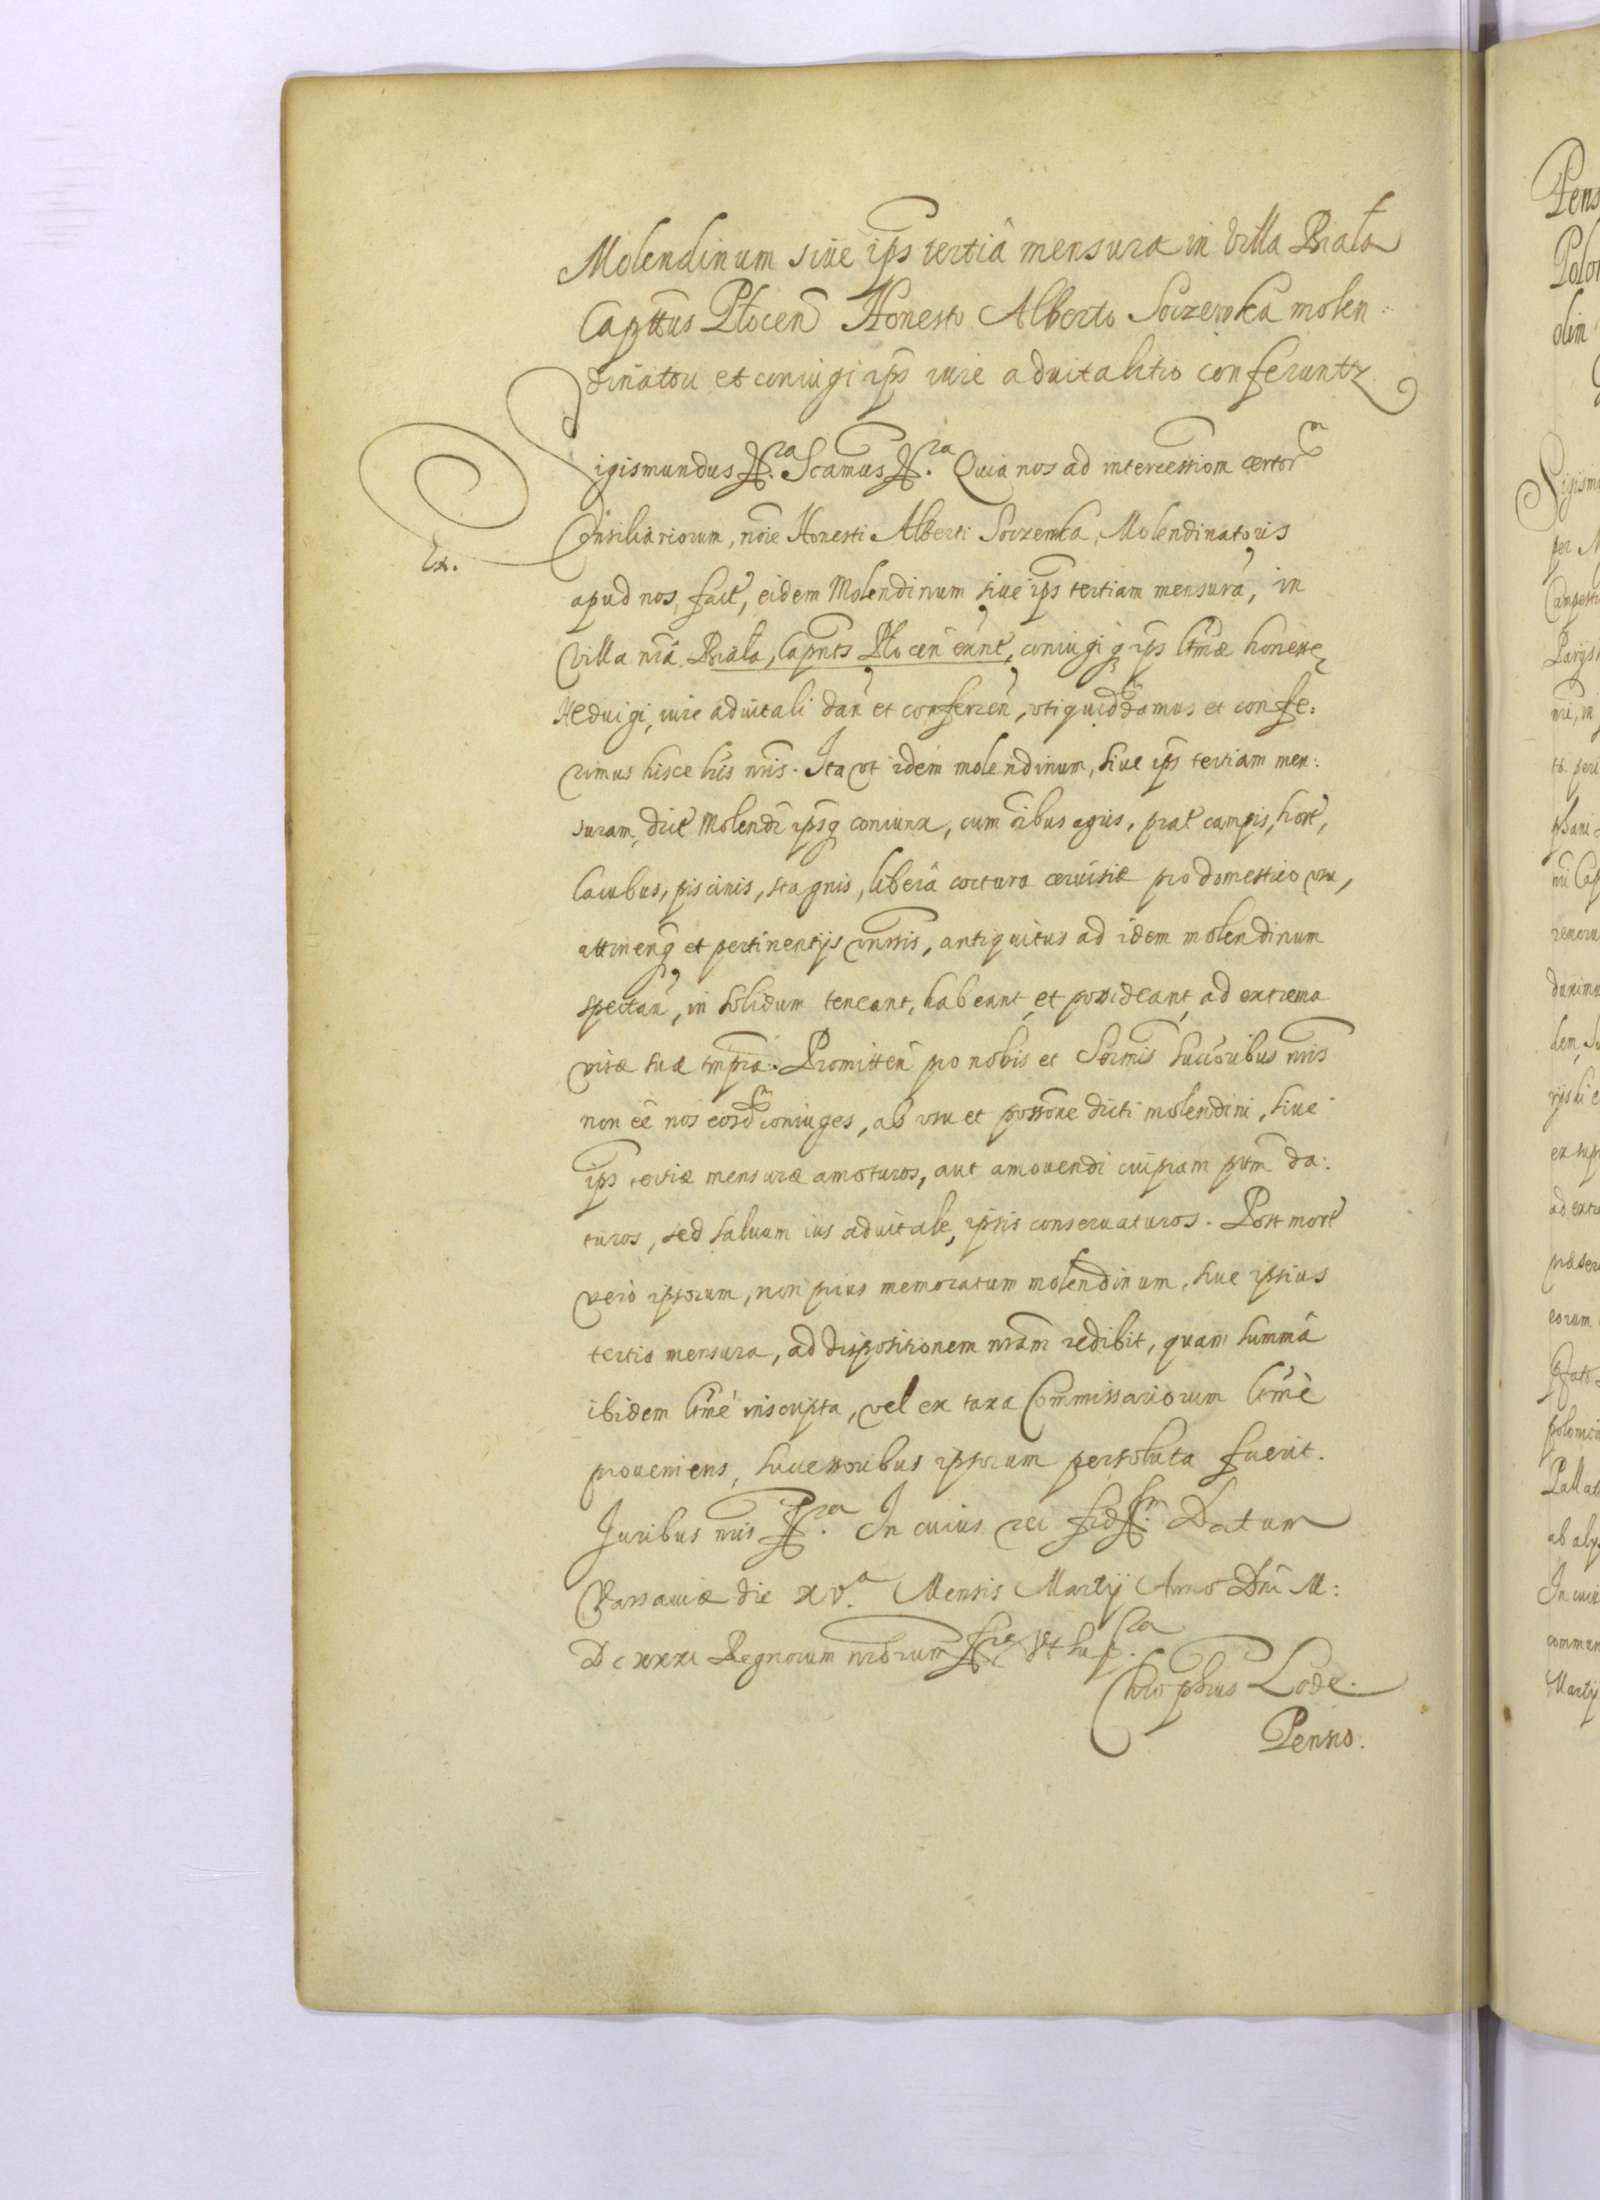 Molendinum siue ip̃s tertiâ mensura in Villa Biała
Capittũs Płocen̄ Honesto Alberto Soczewka molen:
dinatori et coniugi ip̃s iure aduitalitio conferuntr
Sigismundus &ra. Scamus &ra. Quia nos ad intercession̄ certor̄
Ex.
Consiliariorum, nõie Honesti Alberti Soczewka, Molendinatoris
apud nos fact, eidem Molendinum siue ip̃s tertiam mensurã, in
Villa nrã Biała, Capnts Płocen̄ exnt, coniugi q ip̃s ltmæ honestæ
Heduigi, iure aduitali dan̄ et conferen̄, vti quid damus et confe:
rimus hisce lrĩs nrĩs. Ita vt idem molendinum, siue ip̃s tertiam men:
suram, dict Molendr̃ ipsq coniunx, cum õibus agris, prat campis, hort,
lacubus, piscinis, stagnis, liberâ coctura ceruisiæ pro domestico vsu,
attinen̄q et pertinentijs vnrsis, antiquitus ad idem molendinum
spectan̄, in solidum teneant, habeant, et possideant, ad extrema
vitæ suæ tmpra. Promitten̄ pro nobis et Sermis succoribus nrĩs
non eẽ nos eosd̃ coniuges, ab vsu et possõne dicti molendini, siue
ip̃s tertiæ mensuræ amoturos, aut amouendi cuipiam ptm̃ da:
turos, sed saluum ius aduitale, ipsis conseruaturos. Post mort
verò ipsorum, non prius memoratum molendinum, siue ipsius
tertia mensura, ad dispositionem nrãm redibit, quam summã
ibidem ltmè inscripta, vel ex taxa Commissariorum ltmè
proueniens, successoribus ipsorum persoluta fuerit.
Juribus nrĩs &ra. In cuius rei fid &m. Datum
Varsauiæ die xv.a Mensis Martij Anno Dnĩ M:
Dcxxxi Regnorum nrõrum &ra Vt supra.
Chrophrus Lode.